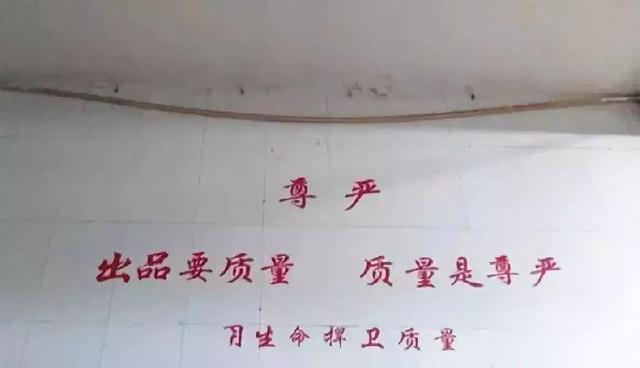 尊严
出品要质量 质量是尊严
月生命捍卫质量